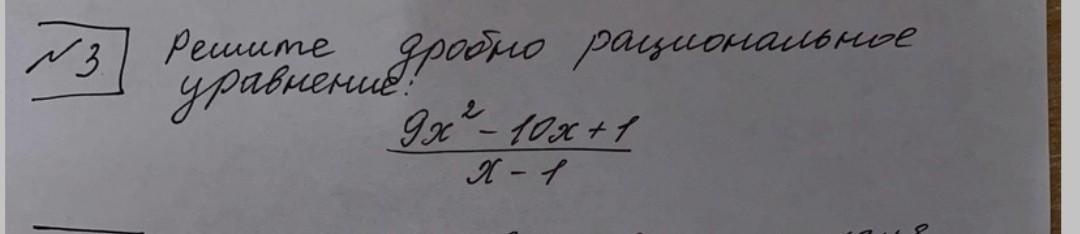 №3 Решите дробно рациональное
уравнение:
9x² - 10x + 1
x - 1